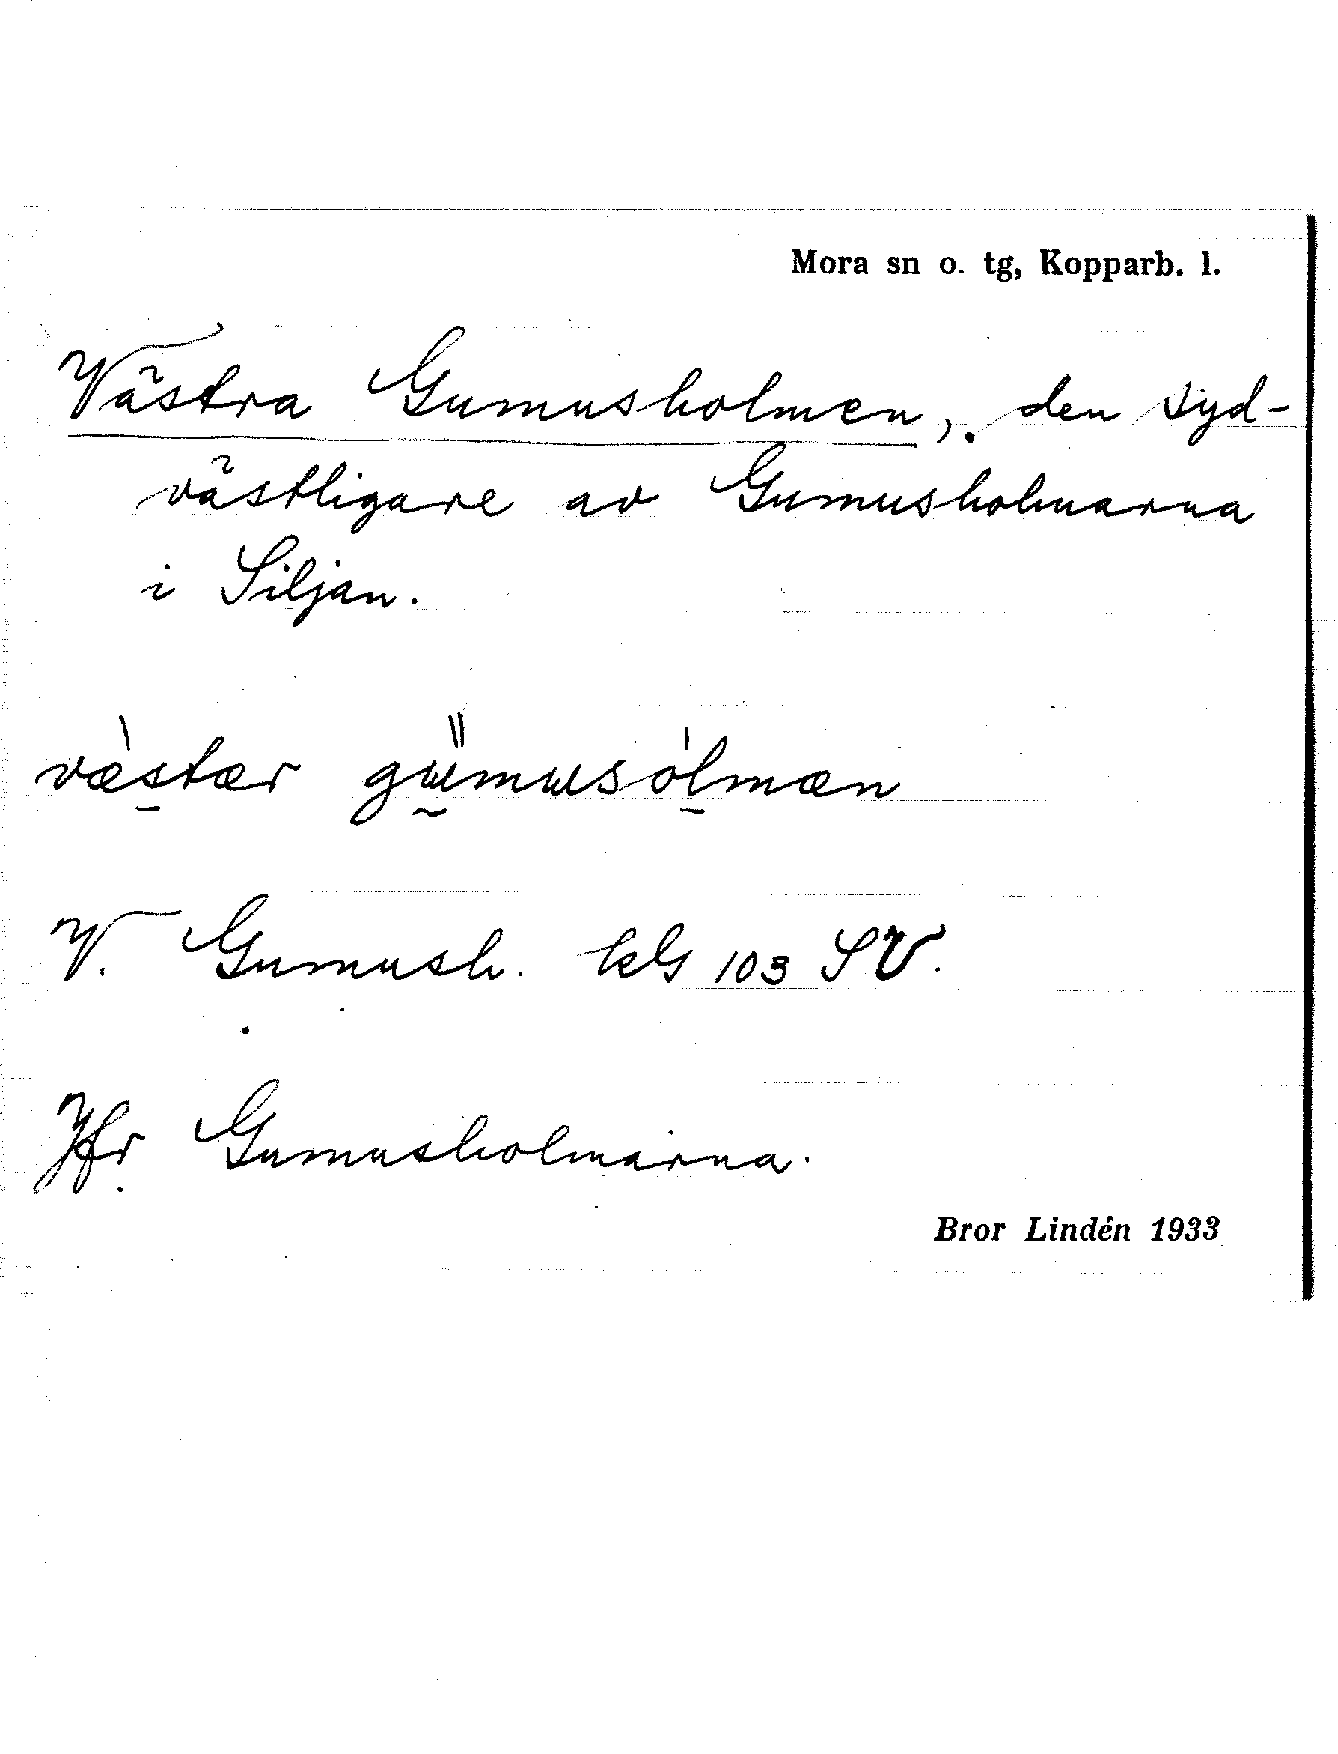 Mora sn o. tg, Kopparb. l.
Västra Gumusholmen, den syd-
västligare av Gumusholmarna
i Siljan.
væ̀stær gɯ̈mɯsòlmæn
V. Gumush. kbl 103 SV.
Jfr Gumusholmarna.
Bror Lindén 1933